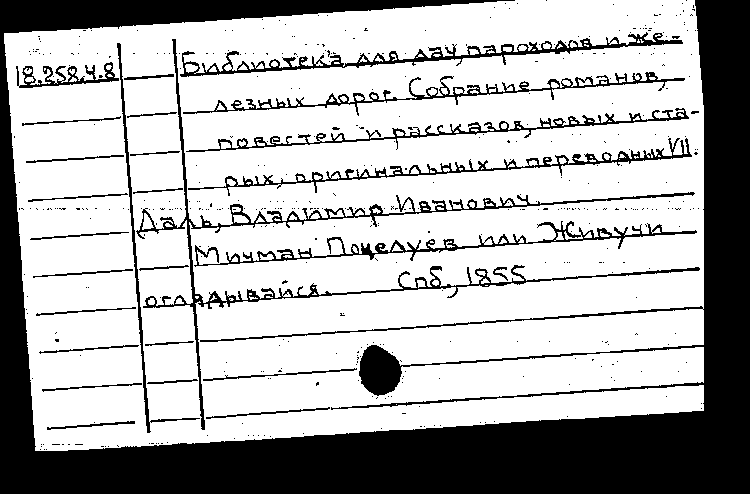 18.258.4.8 Библиотека для дач, пароходов и же-
лезных дорог. Собрание романов,
повестей и рассказов, новых и ста-
рых, оригинальных и переводных VII.
Даль, Владимир Иванович.
Мичман Поцелуев или Живучи
оглядывайся. Спб., 1855